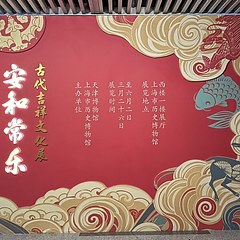 安和常乐
古代吉祥文化展
主办单位
上海市历史博物馆
天津博物馆
展览时间
三月二十六日
至六月二日
展览地点
上海市历史博物馆
西楼一楼展厅